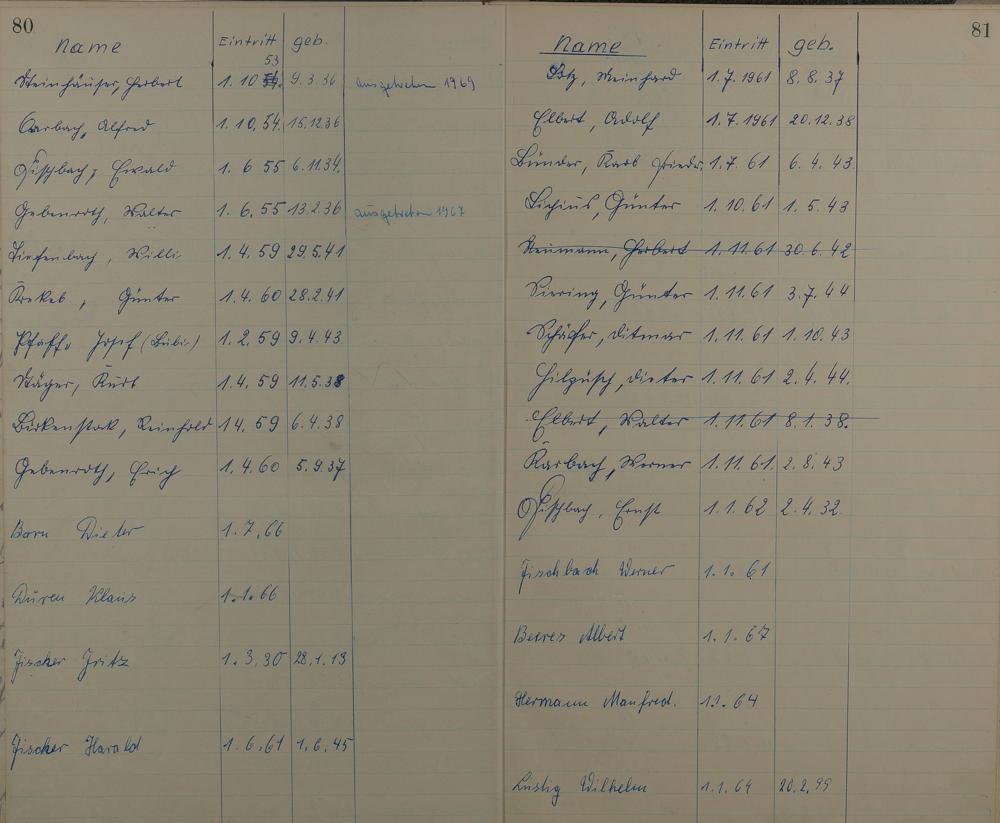 80
Name Eintritt geb.
53
Steinhäuser, Herbert 1. 10 54. 9. 3. 36 ausgetreten 1969
Carbach, Alfred 1. 10. 54. 15.12.36
Fischbach, Ewald 1. 6 55 6. 11. 34.
Gebenroth, Walter 1. 6. 55 13.2.36 ausgetreten 1967
Tiefenbach, Willi 1. 4. 59 29.5.41
Krekel, Günter 1. 4. 60 28.2.41
Pfaffe Josef (Bubi) 1. 2. 59 9. 4. 43
Stäger, Kurt 1. 4. 59 11. 5. 38
Birkenstock, Reinhold 1 4. 59 6. 4. 38
Gebenroth, Erich 1. 4. 60 5. 9. 37
Born Dieter 1. 7. 66
Duren Klaus 1. 1. 66
Fischer Fritz 1. 3. 30 28. 1. 13
Fischer Harald 1. 6. 61 1. 6. 45
81
Name Eintritt geb.
Meinhard 1. 7. 1961 8. 8. 37
Elbert, Adolf 1. 7. 1961 20. 12. 38
Bünder, Karl Friedr. 1. 7. 61 6. 4. 43
Günter 1. 10. 61 1. 5. 43
Neumann, Herbert 1. 11. 61 30. 6. 42
Siering, Günter 1. 11. 61 3. 7. 44
Schäfer, Ditmar 1. 11. 61 1. 10. 43
Hilpüsch, Dieter 1. 11. 61 2. 4. 44.
Elbert, Walter 1. 11. 61 8. 1. 38.
Karbach, Werner 1. 11. 61. 2. 8. 43
Fischbach, Ernst 1. 1. 62 2. 4. 32.
Fischbach Werner 1. 1. 61
Beeres Albert 1. 1. 67
Hermann Manfred. 1. 1. 64
Lustig Wilhelm 1. 1. 64 20. 2. 99